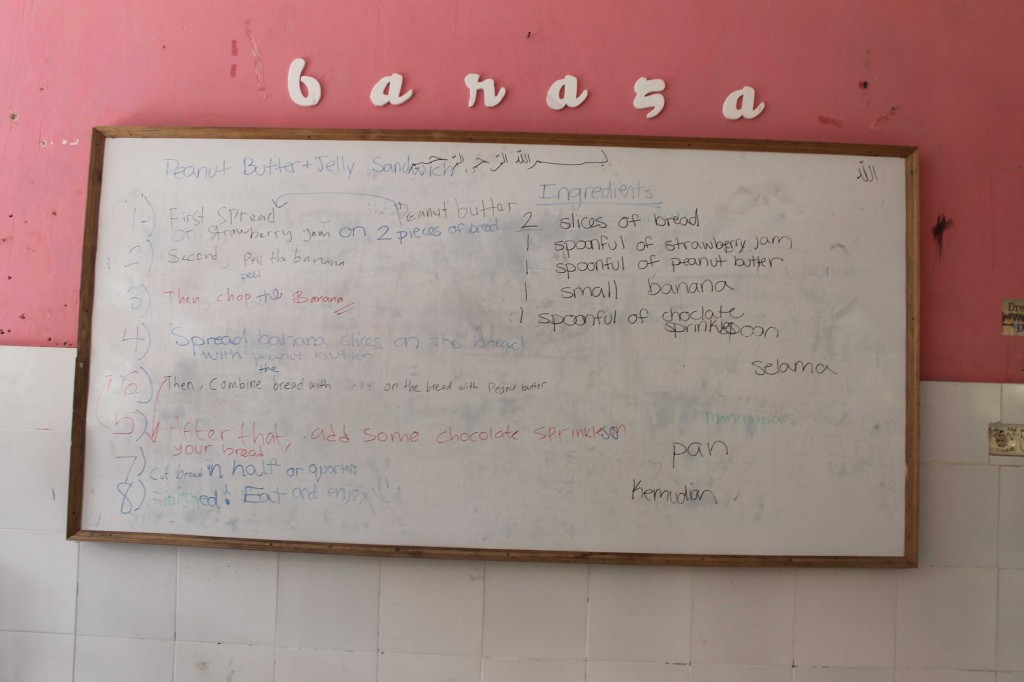 barasa
Peanut Butter + Jelly Sandwich بسم الله الرحمن الرحيم
الله
Ingredients
2 slices of bread
1 spoonful of strawberry jam
1 spoonful of peanut butter
1 small banana
1 spoonful of choclate
sprinkl spoon
1) First spread Peanut butter
or strawberry jam on 2 pieces of bread
2) Second, Peel the banana
peel
3) Then, chop the Banana
4) Spread banana slices on the bread
with peanut butter
the
Then, combine bread with on the bread with Peanut butter
5) After that, add some chocolate sprinkles on
your bread
7) Cut bread in half or quarters
8) Finished! Eat and enjoy
selama
pan
kemudian